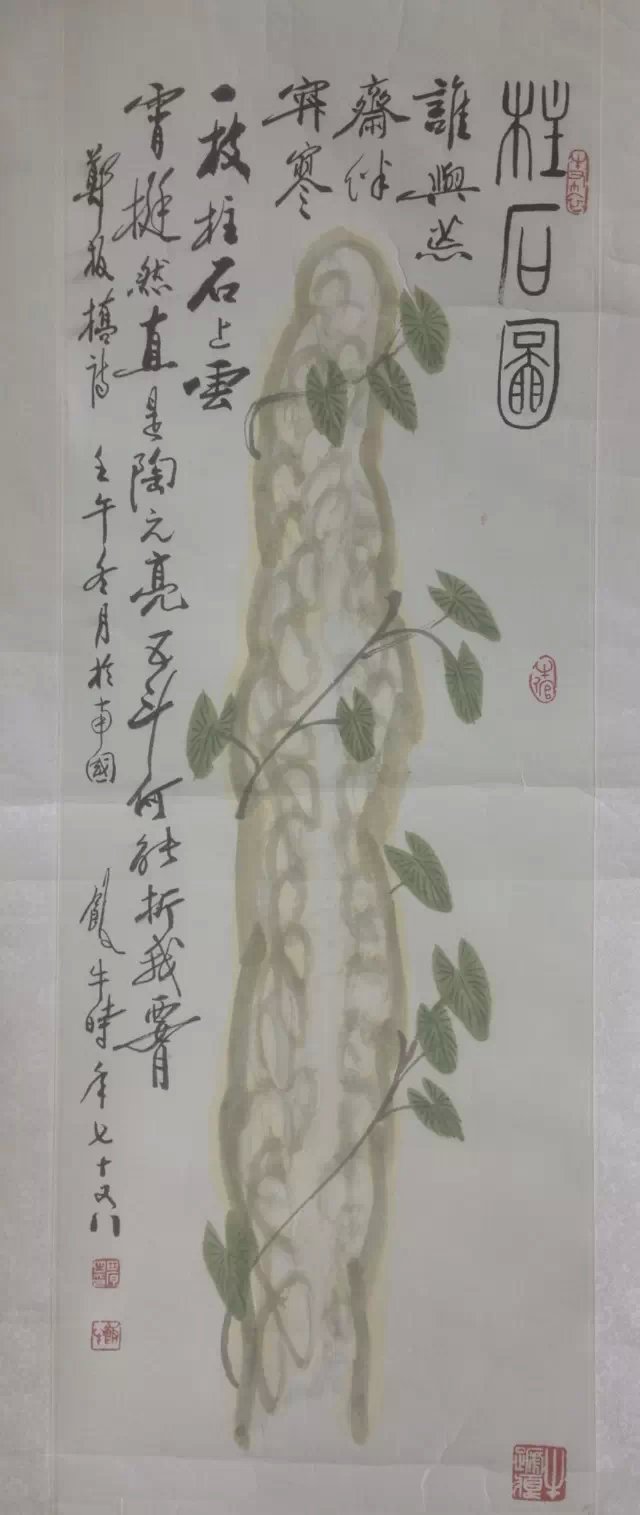 柱石圖
誰與荒
齋伴
寂寥
一枝柱石上雲
霄挺然直是陶元亮五斗何能折我腰
鄭板橋詩 壬午冬月於南國 飯牛時年七十又八